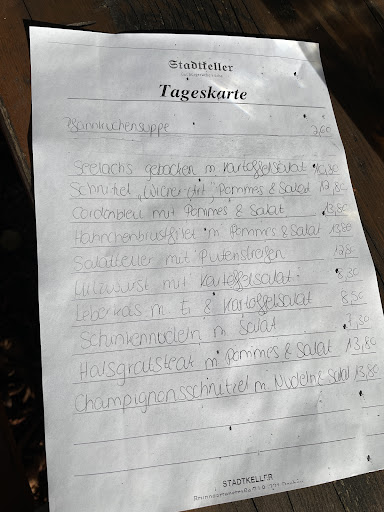 Stadtkeller
Tageskarte
Pfannkuchensuppe
Seelachs gebacken m. Kartoffelsalat 10,30
Schnitzel "Wiener Art" Pommes & Salat 12,80
Cordonbleu mit Pommes & Salat 13,80
Hähnchenbrustfilet m. Pommes & Salat 13,80
Salatteller mit Putenstreifen 12,50
mit Kartoffelsalat
Leberkäs m. Ei & Kartoffelsalat 8,50
Schinkennudeln m. Salat 7,30
Halsgratsteak m. Pommes & Salat 13,80
Champignonsschnitzel m. Nudeln & Salat 13,80
STADTKELLER